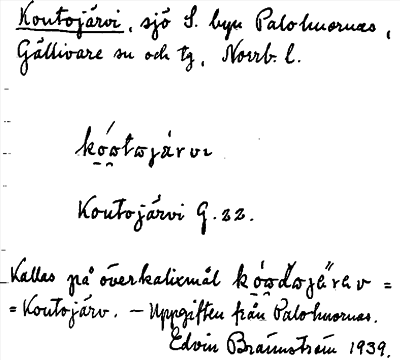 Koutojärvi, sjö S. byn Palohuornas,
Gällivare sn och tg, Norrb. l.
kóutojárvi
Koutojärvi G. 22.
Kallas på överkalixmål =
= Koutojärv. – Uppgiften från Palohuornas.
Edvin Brännström 1939.